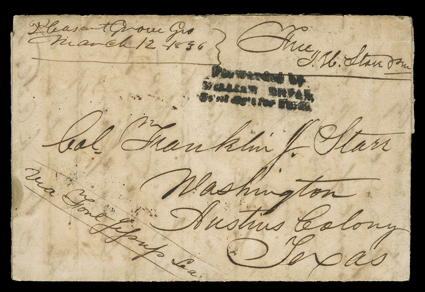 Pleasant Grove Geo
March 12 1836
Free
J. H. Starr pm
Forwarded by
WILLIAM BRYAN,
Gen'l Agt for Texas
Col. Franklin J Starr
Washington
Austins Colony
Texas
Via Fort Jessup La.